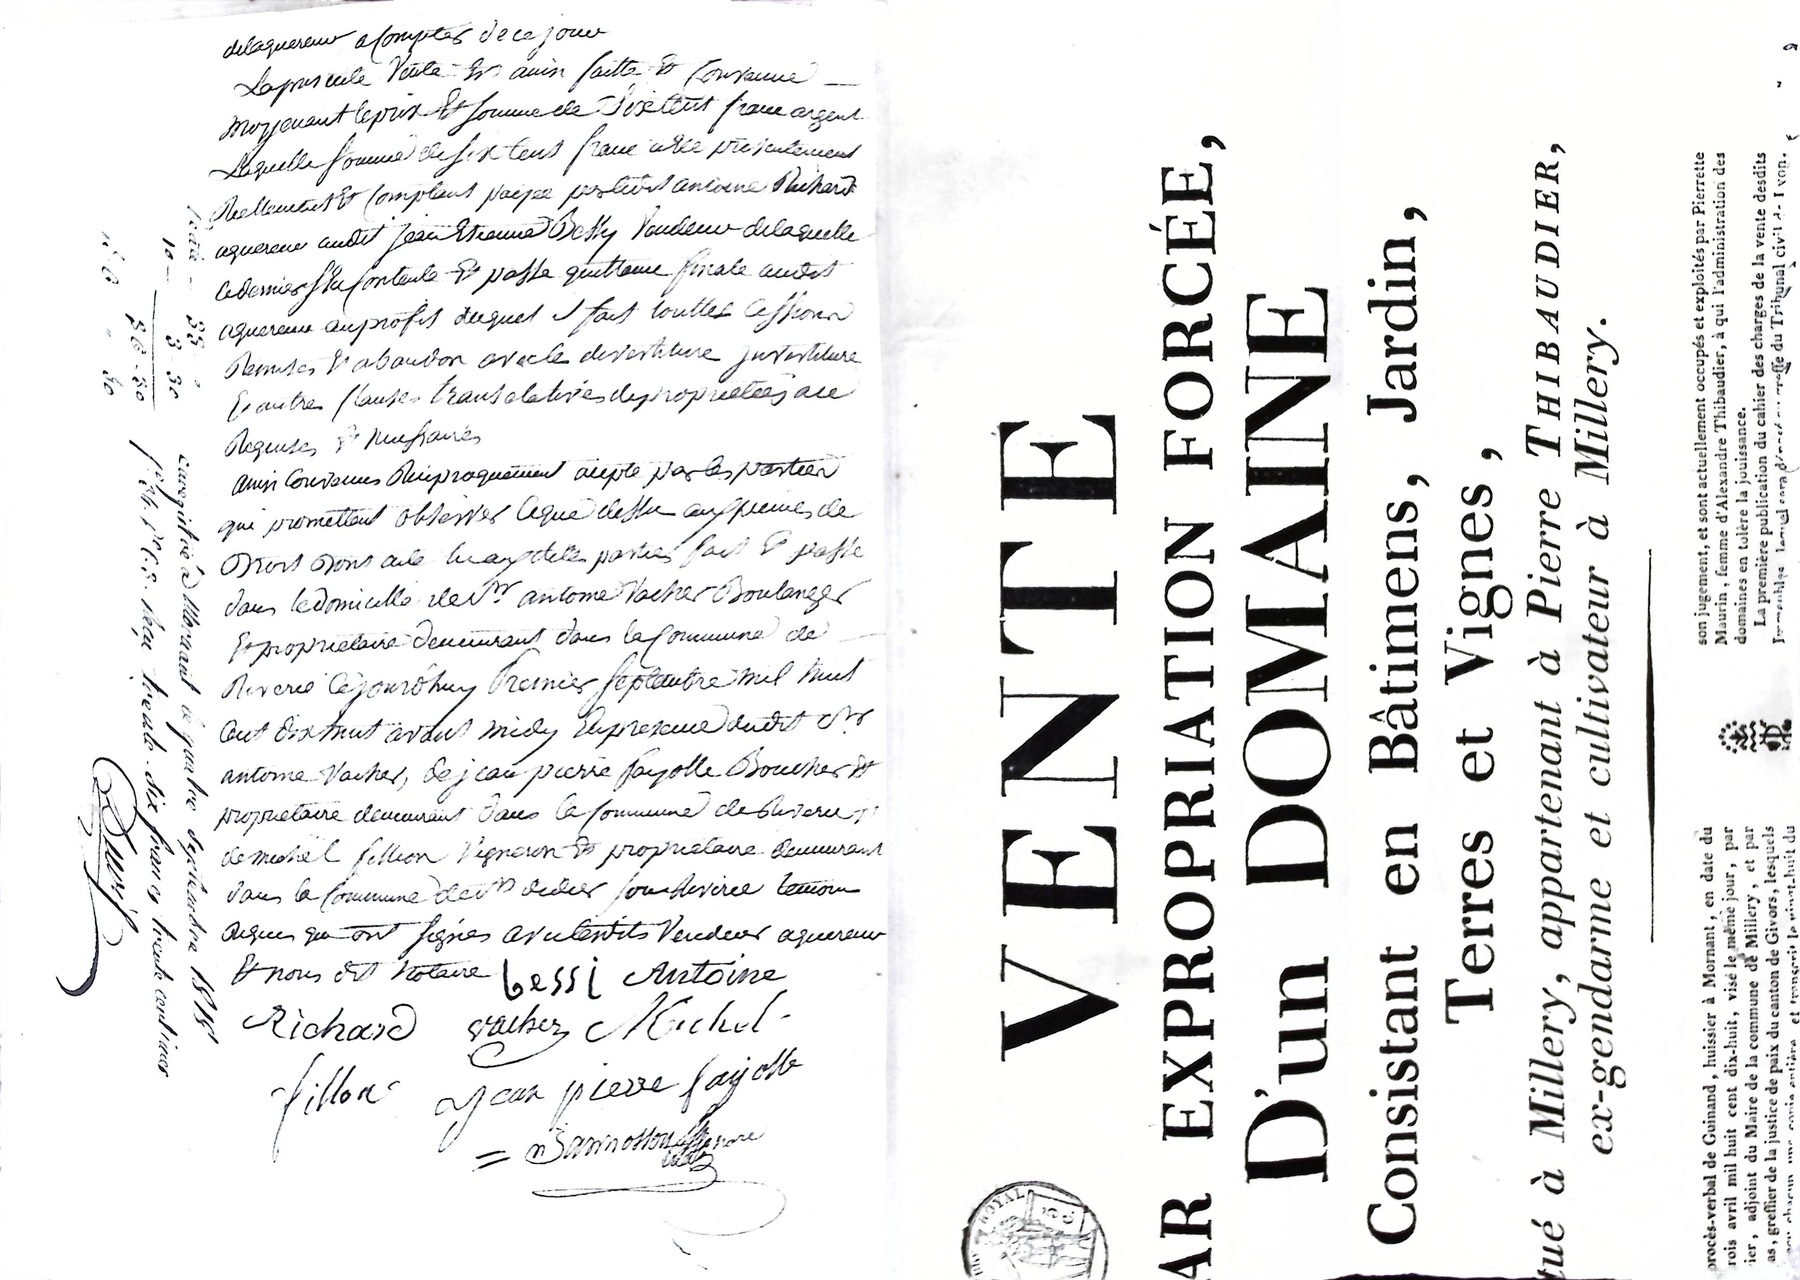 delaquereur a Compter de ce jour
La presente Vente Est ainsi faitte Et Convenue
moyenant le prix Et Somme de Six Cent franc argent
Laquelle Somme de Six Cent franc a été presentement
Reellement Et Comptant paiyée par ledit antoine Richard
aquereur audit jean Etienne Bessy Vendeur de laquelle
ce dernier S'en Contente Et passe quittance finale audit
aquereur au profit duquel il fait touttes Cessions
Remises Et abandon avec le devestiture investiture
Et autres Clauses translatives de proprietées a ce
Requises Et necessaires
ainsi Convenus Reciproquement accepté par les parties
qui promettent observer ce que dessus aux peines de
Droit Dont acte lu aux dittes parties fait Et passé
dans le domicille de Sr antoine Vacher Boulanger
Et proprietaire demeurant dans la Commune de
Riverie Cejourd'huy Premier Septembre mil huit
Cent dix huit avant midy En presence dudit Sr
antoine Vacher, de jean pierre fayolle Boucher Et
proprietaire demeurant dans la Commune de Riverie Et
de michel fillion Vigneron Et proprietaire demeurant
dans la Commune de St didier Sous Riverie temoins
Requis qui ont signés avec lesdits Vendeur aquereur
Et nous dit Notaire bessi Antoine
Richard vacher Michel
fillon jean pierre fayolle
enregistré à Mornant le quatre septembre 1818
reçu trente six francs trente centimes
VENTE
AR EXPROPRIATION FORCÉE,
D'un DOMAINE
Consistant en Bâtimens, Jardin,
Terres et Vignes,
tué à Millery, appartenant à Pierre THIBAUDIER,
ex-gendarme et cultivateur à Millery.
ROYAL
rocès-verbal de Guinand, huissier à Mornant, en date du
rois avril mil huit cent dix-huit, visé le même jour, par
ier, adjoint du Maire de la commune de Millery, et par
as, greffier de la justice de paix du canton de Givors, lesquels
son jugement, et sont actuellement occupés et exploités par Pierrette
Maurin, femme d'Alexandre Thibaudier, à qui l'administration des
domaines en tolère la jouissance.
La première publication du cahier des charges de la vente desdits